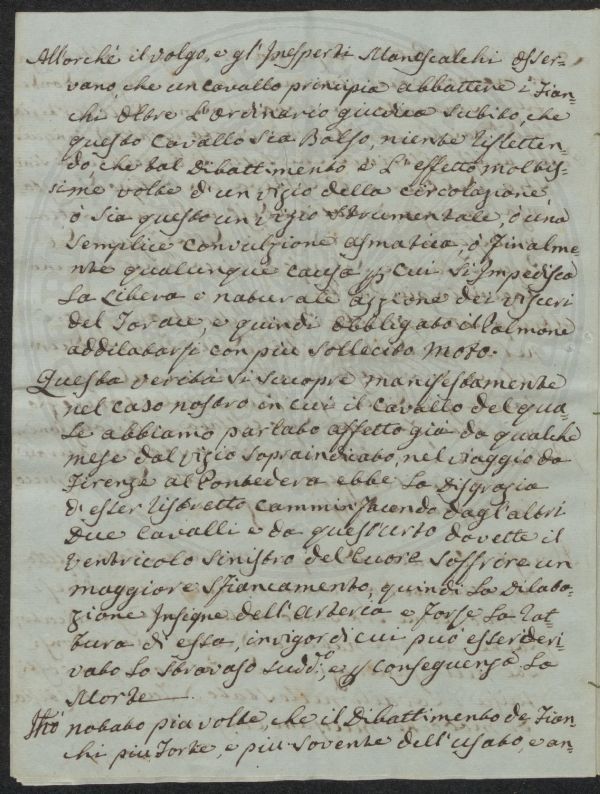 Allorché il volgo, e gl'Inesperti Manescalchi osser-
vano, che un cavallo principia abbattere i Fian-
chi oltre L'ordinario giudica subito, che
questo Cavallo sia Bolso, niente riflette-
ndo, che tal Dibattimento è L'effetto moltis-
sime volte d'un vizio della circolazione,
ò sia questo un vizio strumentale, ò una
semplice convulzione asmatica, ò Finalme-
nte qualunque causa p cui s'Impedisca
La Libera e naturale azzione dei visceri
del Torace, e quindi obbligato il Polmone
addilatarsi con piu sollecito moto.
Questa verità si scuopre manifestamente
nel caso nostro in cui il cavallo del qua-
le abbiamo parlato affetto già da qualche
mese dal vizio sopraindicato, nel viaggio da
Firenze al Pontedera ebbe La Disgrazia
d'esser ristretto cammin facendo dagl'altri
Due Cavalli e da quest'urto dovette il
Ventricolo sinistro del Cuore soffrire un
maggiore sfiancamento, quindi La Dilata-
zione Insigne dell'Arteria e forse La rot-
tura di essa, in vigor di cui può esser deri-
vato Lo stravaso sudd:o, e p conseguenza La
Morte
Hò notato piu volte, che il Dibattimento de Fian-
chi piu Forte, e piu sovente dell'usato, e an-